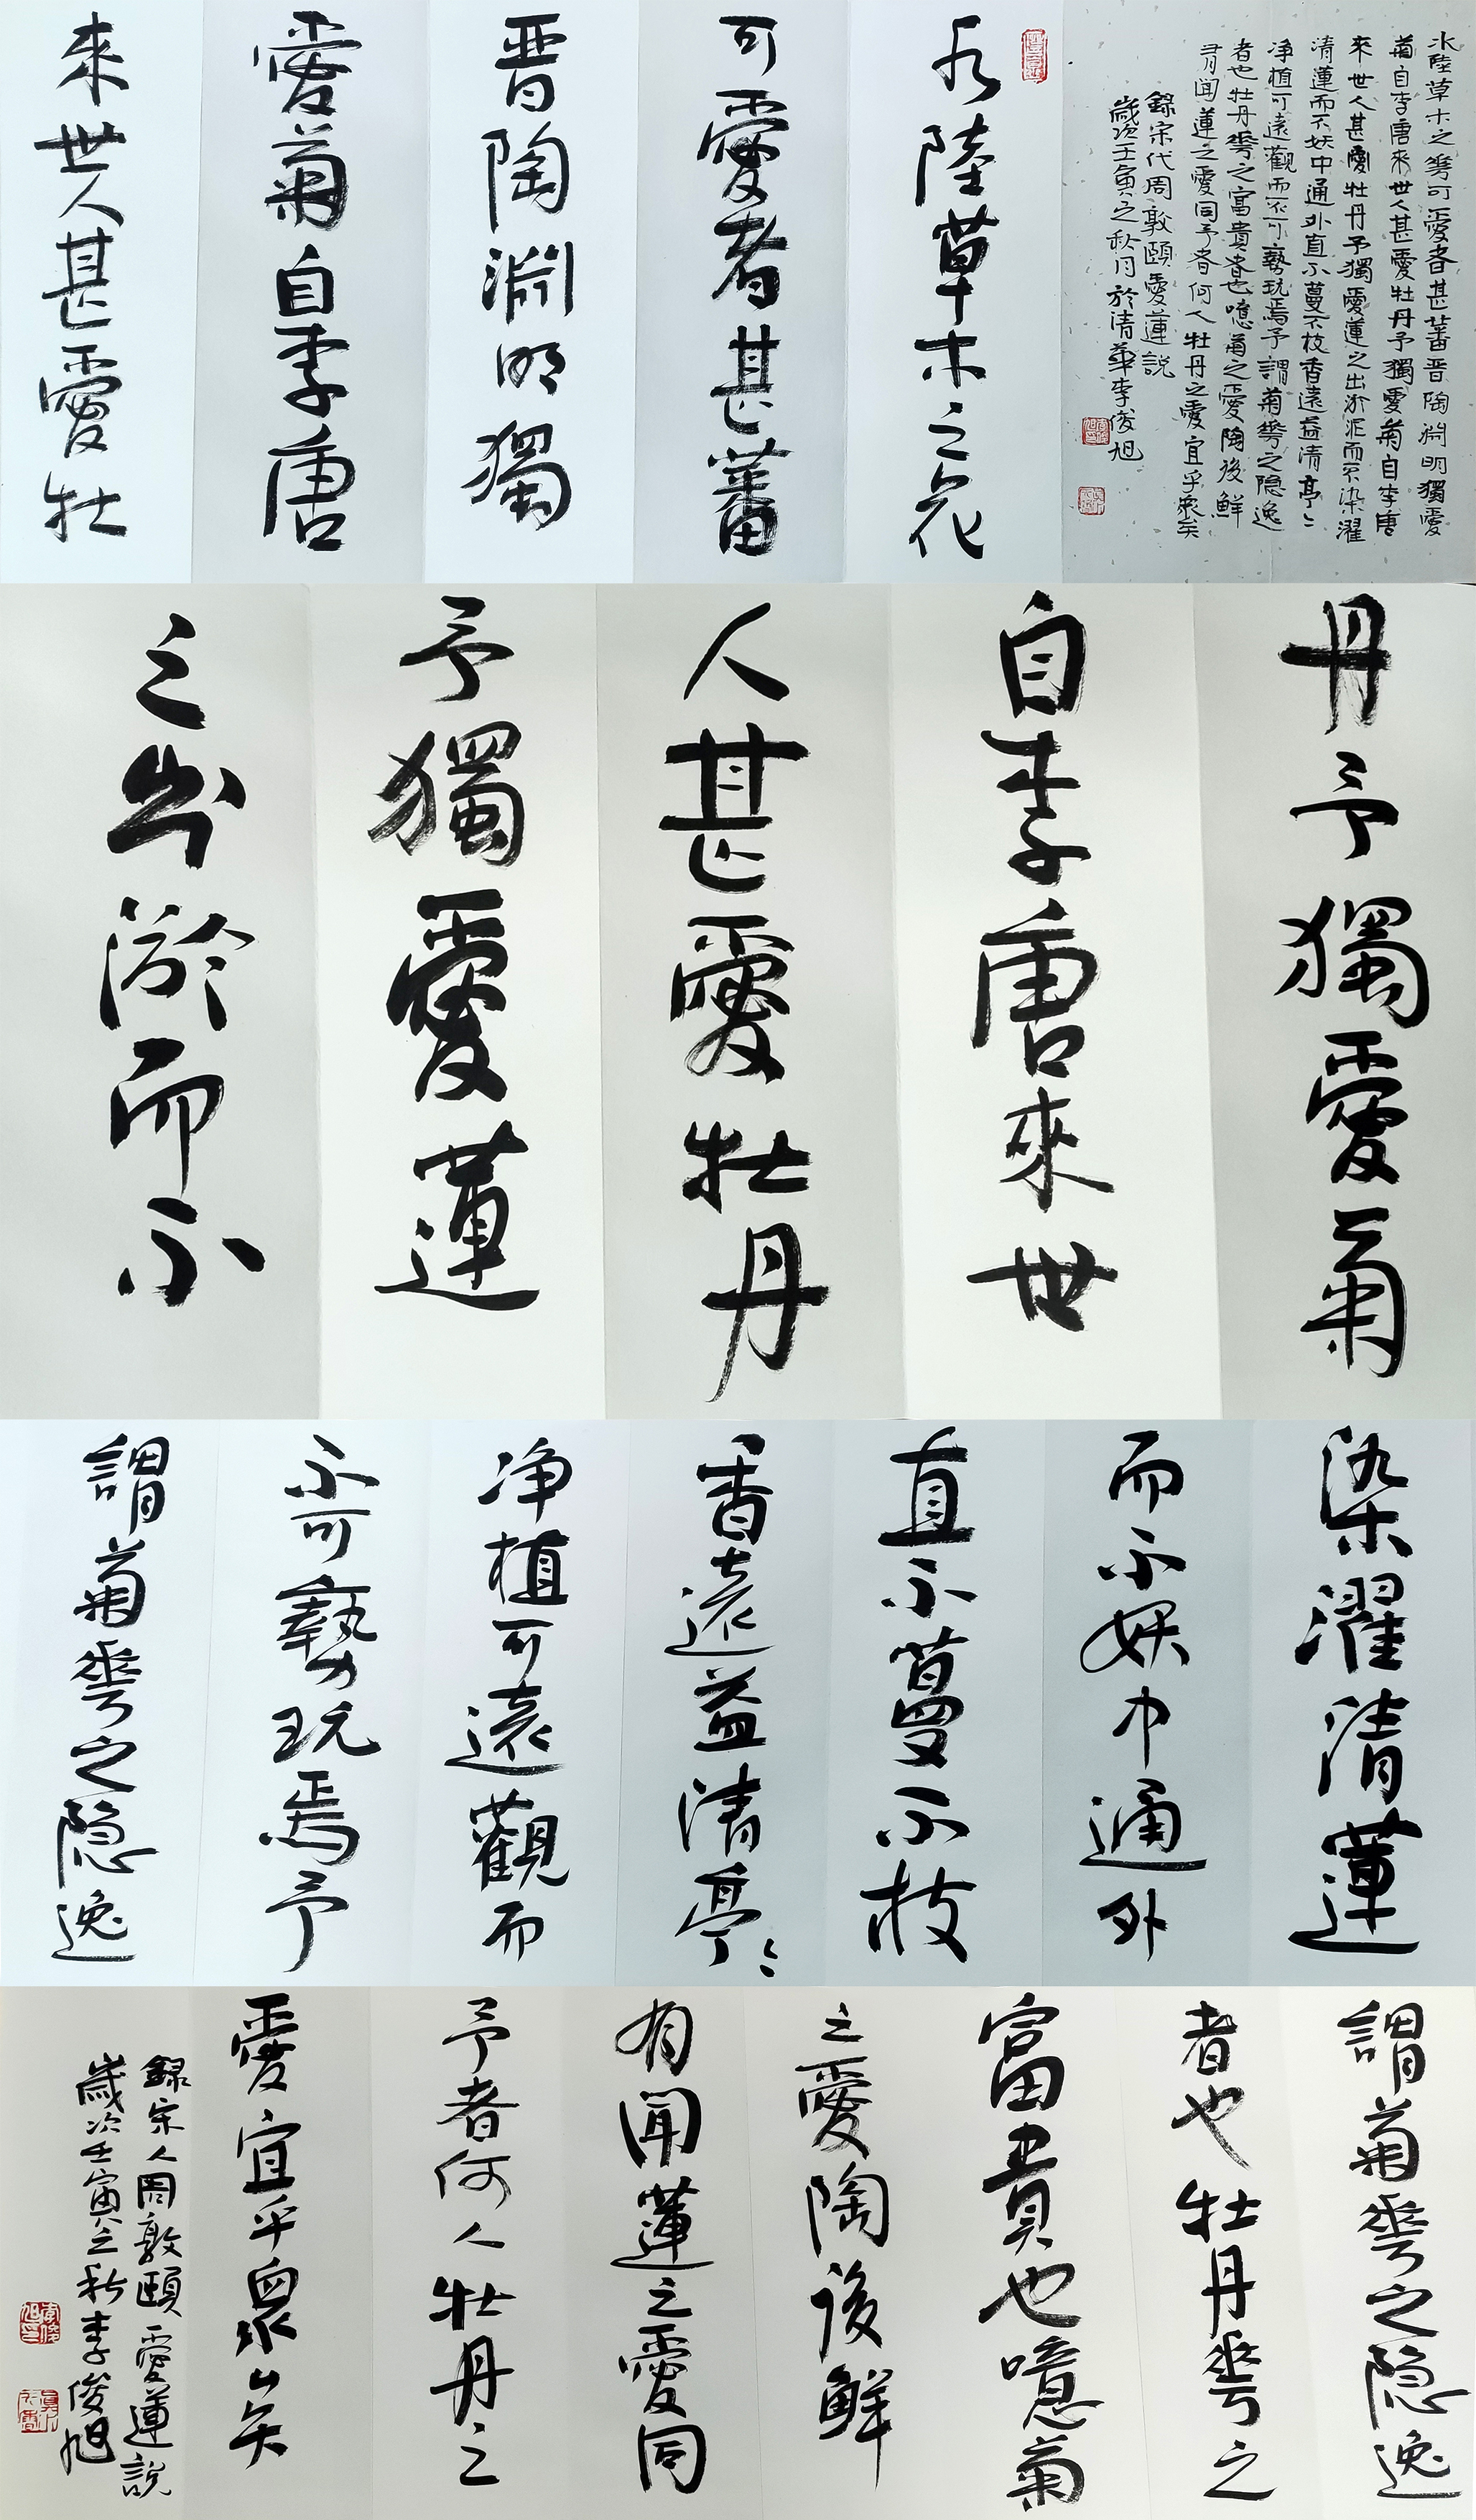 水陸草木之華可愛者甚蕃晋陶淵明獨愛
菊自李唐來世人甚愛牡丹予獨愛菊自李唐
來世人甚愛牡丹予獨愛蓮之出淤泥而不染濯
清蓮而不妖中通外直不蔓不枝香遠益清亭〻
净植可遠觀而不可褻玩焉予謂菊華之隐逸
者也牡丹華之富貴者也噫菊之愛陶後鮮
有聞蓮之愛同予者何人牡丹之愛宜乎衆矣
録宋代周敦頤愛蓮説
歲次壬寅之秋月於清華李俊旭
水陸草木之花
可愛者甚蕃
晋陶淵明獨
愛菊自李唐
來世人甚愛牡
丹予獨愛菊
自李唐來世
人甚愛牡丹
予獨愛蓮
之出淤而不
染濯清蓮
而不妖中通外
直不蔓不枝
香遠益清亭〻
净植可遠觀而
不可褻玩焉予
謂菊華之隐逸
謂菊華之隐逸
者也牡丹華之
富貴也噫菊
之愛陶後鮮
有聞蓮之愛同
予者何人牡丹之
愛宜乎衆矣
録宋人周敦頤愛蓮説
歲次壬寅之秋李俊旭